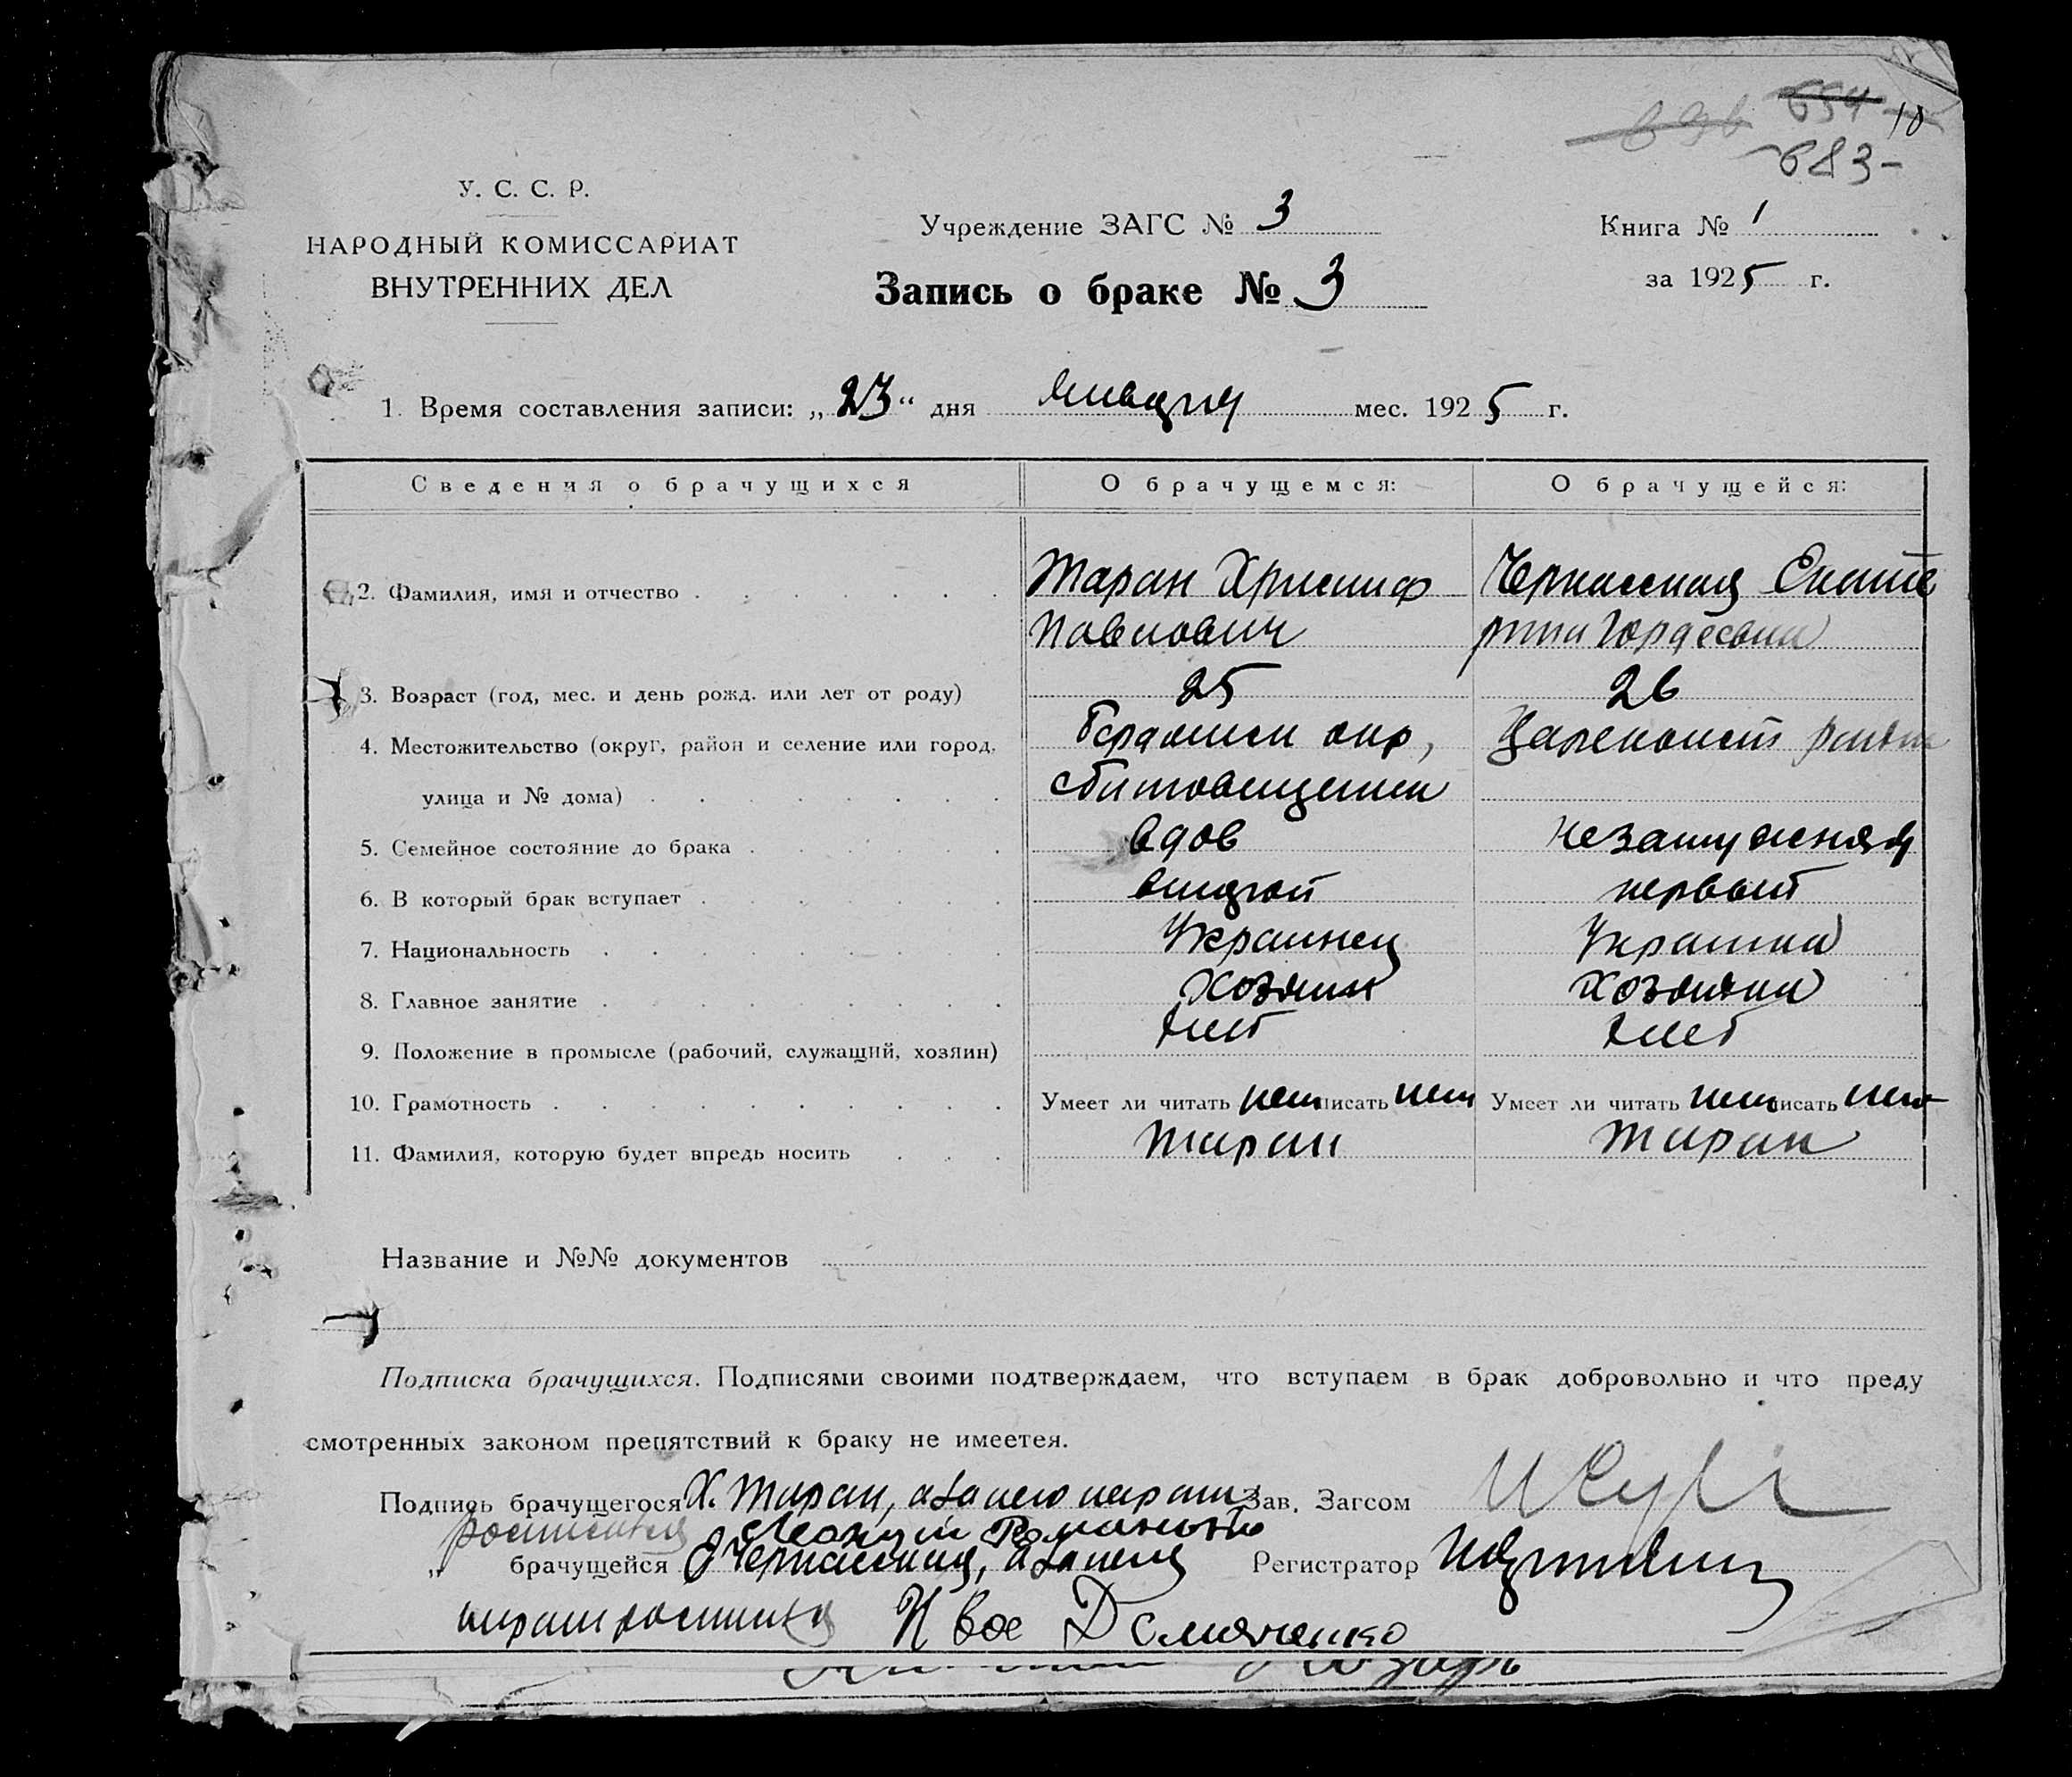 654 10
683-
У. С. С. Р.
НАРОДНЫЙ КОМИССАРИАТ
ВНУТРЕННИХ ДЕЛ
Учреждение ЗАГС № 3
Запись о браке № 3
Книга № 1
за 1925 г.
1. Время составления записи: „23“ дня января мес. 1925 г.
Сведения о брачущихся О брачущемся: О брачущейся:
2. Фамилия, имя и отчество Таран Хрисанф Черкасская Екате
Павлович рина Гордеевна
3. Возраст (год, мес. и день рожд. или лет от роду) 25 26
4. Местожительство (округ, район и селение или город, окр, Царекост
улица и № дома)
5. Семейное состояние до брака вдов незамужняя
6. В который брак вступает второй первый
7. Национальность Украинец Украинка
8. Главное занятие Хозяин Хозяйка
9. Положение в промысле (рабочий, служащий, хозяин) нет нет
10. Грамотность Умеет ли читать нет писать нет Умеет ли читать нет писать нет
11. Фамилия, которую будет впредь носить Таран Таран
Название и №№ документов
Подписка брачущихся. Подписями своими подтверждаем, что вступаем в брак добровольно и что преду
смотренных законом препятствий к браку не имеетея.
Подпись брачущегося Х. Таран, а за него неграм Зав. Загсом
росписался Романенко
„ брачущейся Черкасская, а за нею Регистратор
неграм росписался Демяненко